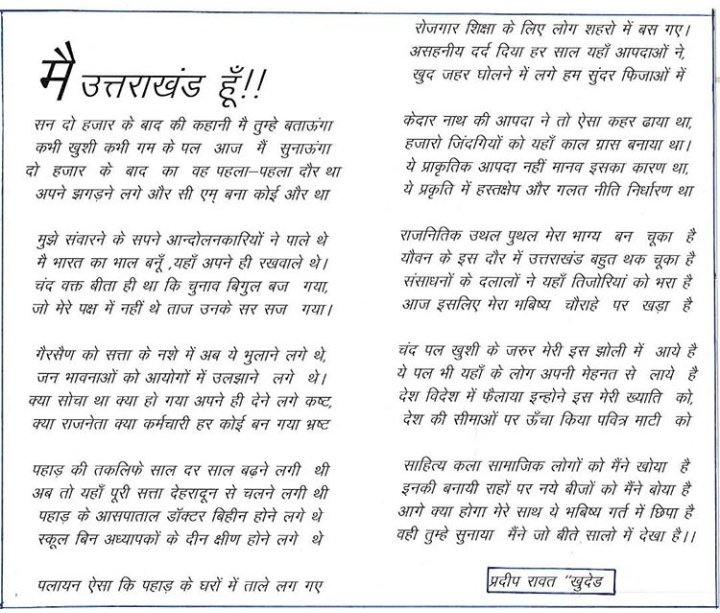 मै उत्तराखंड हूँ!!
सन दो हजार के बाद की कहानी मै तुम्हे बताऊंगा
कभी खुशी कभी गम के पल आज मैं सुनाऊंगा
दो हजार के बाद का वह पहला–पहला दौर था
अपने झगड़ने लगे और सी एम् बना कोई और था
मुझे संवारने के सपने आन्दोलनकारियों ने पाले थे
मै भारत का भाल बनूँ ,यहाँ अपने ही रखवाले थे।
चंद वक्त बीता ही था कि चुनाव बिगुल बज गया,
जो मेरे पक्ष में नहीं थे ताज उनके सर सज गया।
गैरसैण को सत्ता के नशे में अब ये भुलाने लगे थे,
जन भावनाओं को आयोगों में उलझाने लगे थे।
क्या सोचा था क्या हो गया अपने ही देने लगे कष्ट,
क्या राजनेता क्या कर्मचारी हर कोई बन गया भ्रष्ट
पहाड़ की तकलिफे साल दर साल बढ़ने लगी थी
अब तो यहाँ पूरी सत्ता देहरादून से चलने लगी थी
पहाड़ के आसपाताल डॉक्टर बिहीन होने लगे थे
स्कूल बिन अध्यापकों के दीन क्षीण होने लगे थे
पलायन ऐसा कि पहाड़ के घरों में ताले लग गए
रोजगार शिक्षा के लिए लोग शहरो में बस गए।
असहनीय दर्द दिया हर साल यहाँ आपदाओं ने,
खुद जहर घोलने में लगे हम सुंदर फिजाओं में
केदार नाथ की आपदा ने तो ऐसा कहर ढाया था,
हजारो जिंदगियों को यहाँ काल ग्रास बनाया था।
ये प्राकृतिक आपदा नहीं मानव इसका कारण था,
ये प्रकृति में हस्तक्षेप और गलत नीति निर्धारण था
राजनितिक उथल पुथल मेरा भाग्य बन चूका है
यौवन के इस दौर में उत्तराखंड बहुत थक चूका है
संसाधनों के दलालों ने यहाँ तिजोरियां को भरा है
आज इसलिए मेरा भबिष्य चौराहे पर खड़ा है
चंद पल खुशी के जरुर मेरी इस झोली में आये है
ये पल भी यहाँ के लोग अपनी मेहनत से लाये है
देश विदेश में फैलाया इन्होने इस मेरी ख्याति को,
देश की सीमाओं पर ऊँचा किया पवित्र माटी को
साहित्य कला सामाजिक लोगों को मैंने खोया है
इनकी बनायी राहों पर नये बीजों को मैंने बोया है
आगे क्या होगा मेरे साथ ये भबिष्य गर्त में छिपा है
वही तुम्हे सुनाया मैंने जो बीते सालो में देखा है।।
प्रदीप रावत "खुदेड